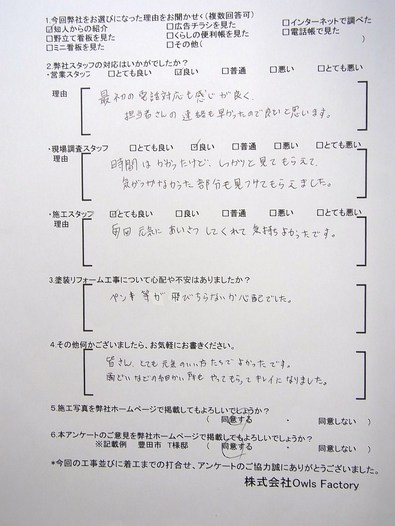 1.今回弊社をお選びになった理由をお聞かせく(複数回答可)
☑知人からの紹介 □広告チラシを見た □インターネットで調べた
□野立て看板を見た □くらしの便利帳を見た □電話帳で見た
□ミニ看板を見た □その他( )
2.弊社スタッフの対応はいかがでしたか?
・営業スタッフ □とても良い ☑良い □普通 □悪い □とても悪い
理由
最初の電話対応も感じが良く、
担当者さんの連絡も早かったので良いと思います。
・現場調査スタッフ ・□とても良い ☑良い □普通 □悪い □とても悪い
理由
時間はかかったけど、しっかりと見てもらえて、
気がつかなかった部分も見つけてもらえました。
・施工スタッフ ☑とても良い □良い □普通 □悪い □とても悪い
理由
毎日 元気に あいさつ してくれて 気持ちよかったです。
3.塗装リフォーム工事について心配や不安はありましたか?
ペンキ等が飛びちらないか心配でした。
4.その他何かございましたら、お気軽にお書きください。
皆さん、とても元気のいい方たちでよかったです。
雨どいなどの細かい所も やってもらってキレイになりました。
5.施工写真を弊社ホームページで掲載してもよろしいでしょうか?
( 同意する ・ 同意しない )
6.本アンケートのご意見を弊社ホームページで掲載してもよろしいでしょうか?
※記載例 豊田市 T様邸 ( 同意する ・ 同意しない )
*今回の工事並びに着工までの打合せ、アンケートのご協力誠にありがとうございました。
株式会社Owls Factory